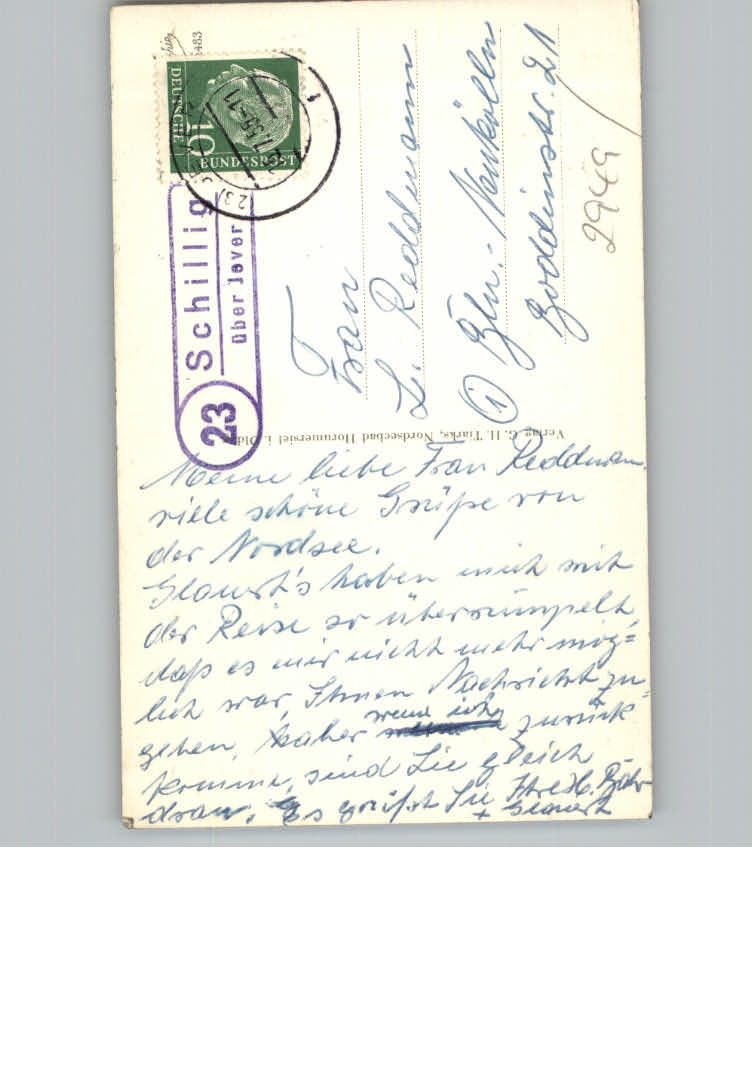 Meine liebe Frau Reddmann.
viele schöne Grüße von
der Nordsee.
Glauert's haben mich mit
der Reise so überrumpelt,
daß es mir nicht mehr mög=
lich war, Ihnen Nachricht zu
geben, aber wenn ich zurück=
komme, sind Sie gleich
dran. Es grüßt Sie Ihre
+ Glauert
Frau
L. Reddmann
(1) Bln.-Neukölln
Boddinstr. 21
2949
DEUTSCHE
BUNDESPOST
10
23
Schillig
über Jever
Verlag G. H. Tjarks, Nordseebad Horumersiel i. Oldb.
483